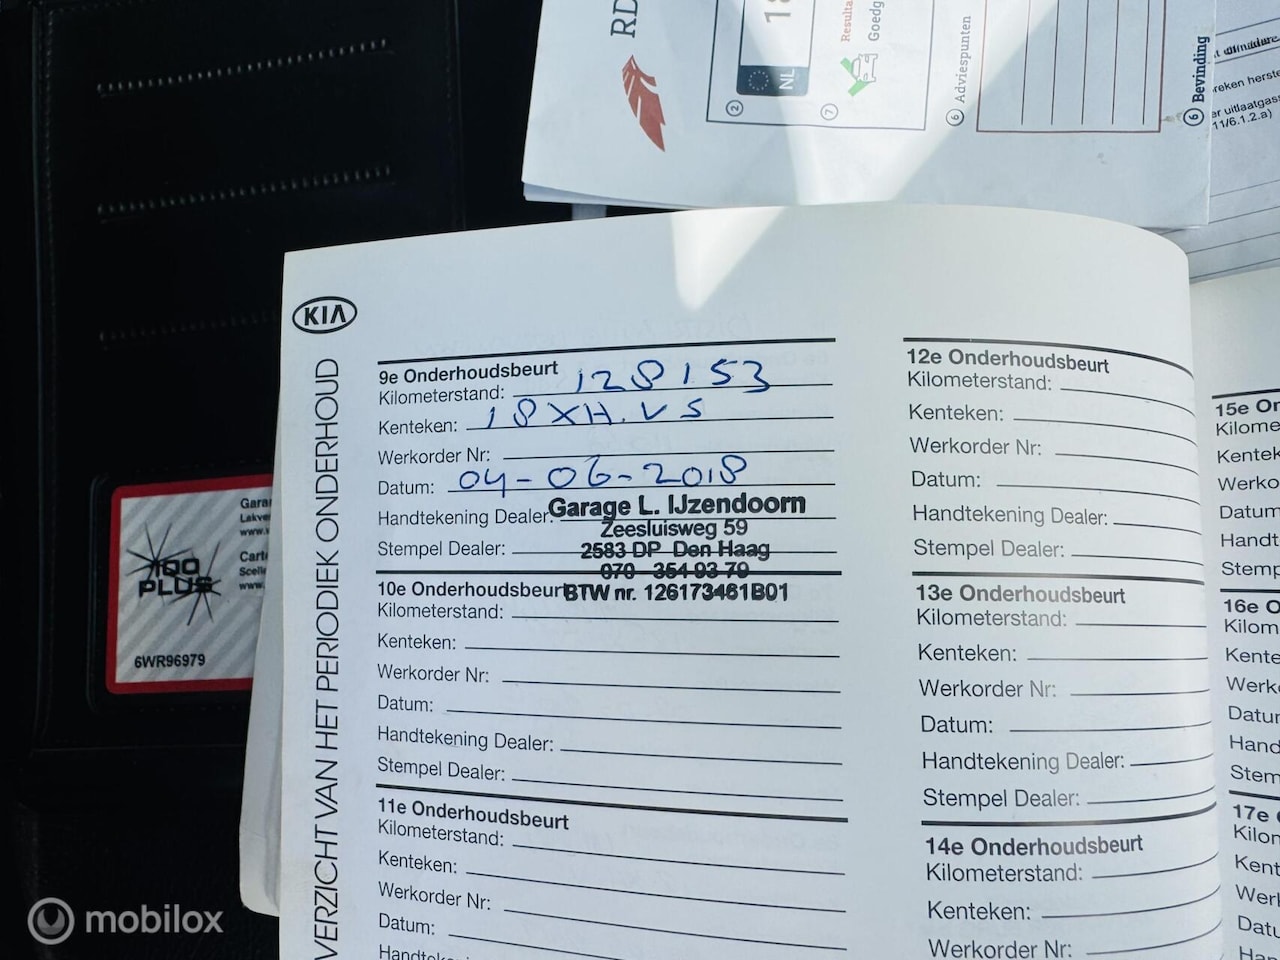 RD
2
18
NL
7
Resulta
Goedg
6 Adviespunten
6 Bevinding
reken herste
er uitlaatgass
11/6.1.2.a)
KIA
VERZICHT VAN HET PERIODIEK ONDERHOUD
9e Onderhoudsbeurt
Kilometerstand: 128153
Kenteken: 18XH.VS
Werkorder Nr:
Datum: 04-06-2018
Handtekening Dealer:
Stempel Dealer:
Garage L. IJzendoorn
Zeesluisweg 59
2583 DP Den Haag
070 - 354 93 79
BTW nr. 126173461B01
10e Onderhoudsbeurt
Kilometerstand:
Kenteken:
Werkorder Nr:
Datum:
Handtekening Dealer:
Stempel Dealer:
11e Onderhoudsbeurt
Kilometerstand:
Kenteken:
Werkorder Nr:
Datum:
Handteke
12e Onderhoudsbeurt
Kilometerstand:
Kenteken:
Werkorder Nr:
Datum:
Handtekening Dealer:
Stempel Dealer:
13e Onderhoudsbeurt
Kilometerstand:
Kenteken:
Werkorder Nr:
Datum:
Handtekening Dealer:
Stempel Dealer:
14e Onderhoudsbeurt
Kilometerstand:
Kenteken:
Werkorder Nr:
15e On
Kilome
Kentek
Werko
Datum
Handt
Stemp
16e O
Kilom
Kente
Werk
Datur
Hand
Stem
17e
Kilon
Kent
Werl
Datu
Han
Gara
Lakve
www.
Carte
Scelle
www.
100
PLUS
6WR96979
mobilox